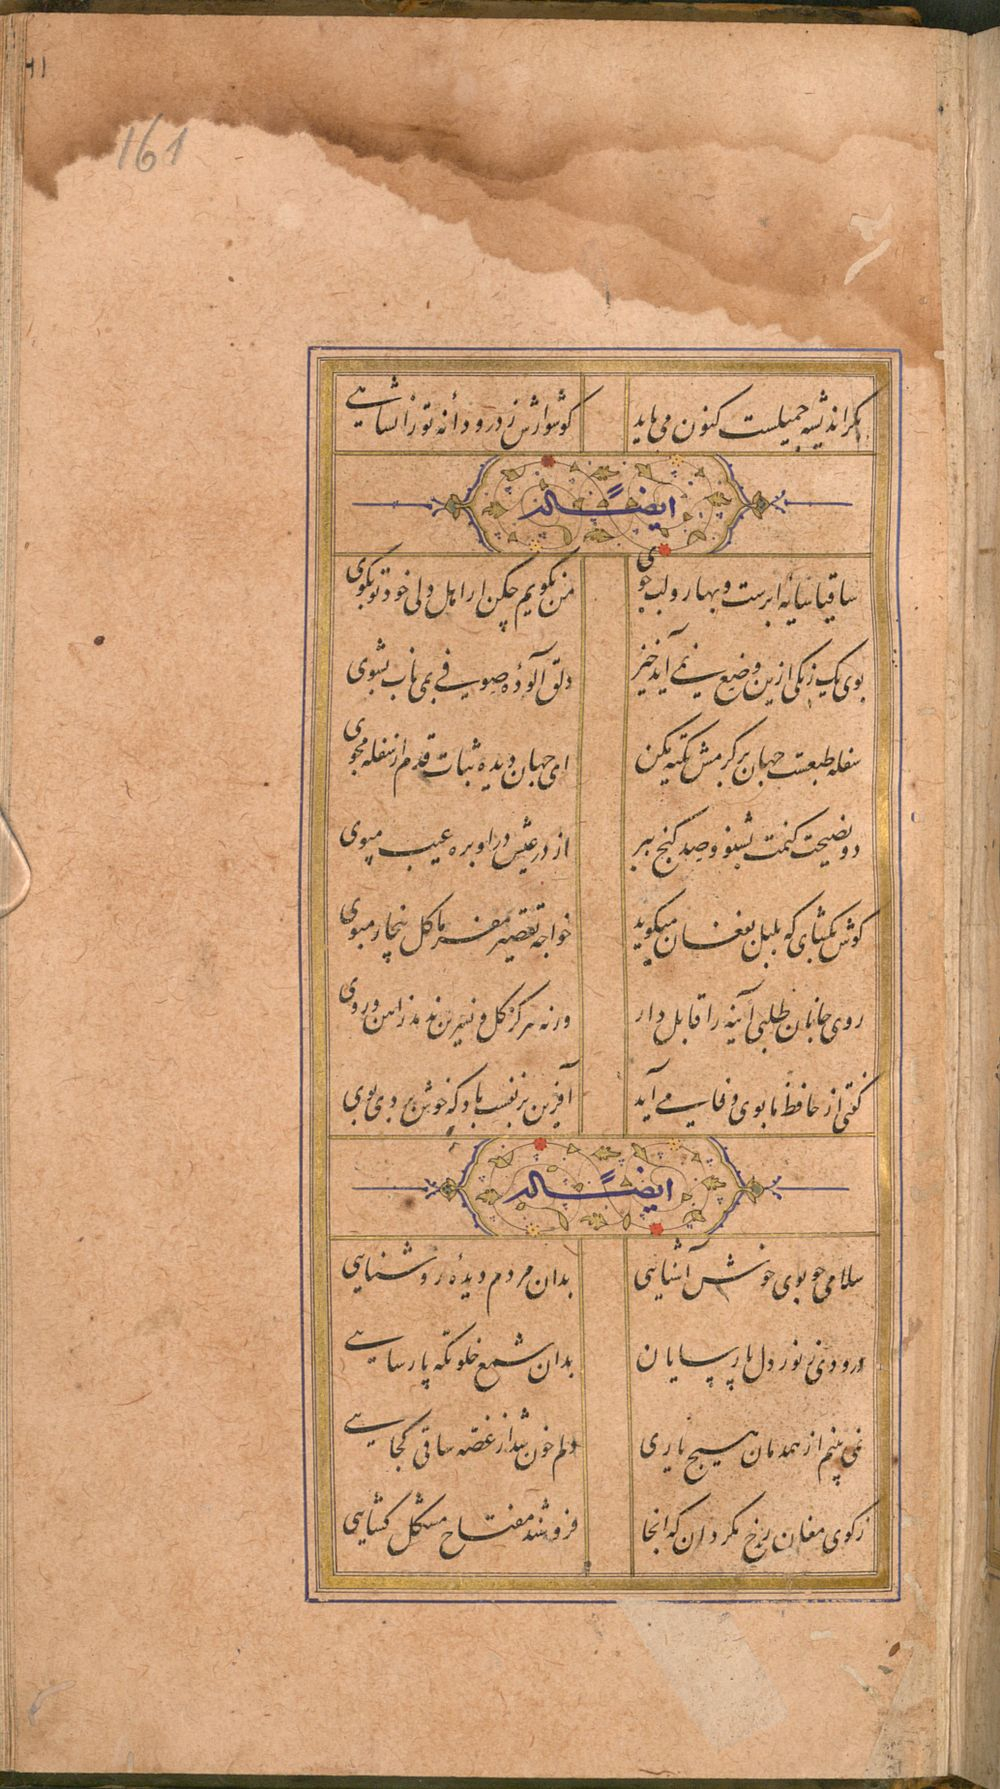 161
بکر اندیشه جمیلست کنون می باید
کوشوارش ز در و دانه تو زانسا شاهی
ایضاً له
ساقیا سایه ابرست و بهار و لب جوی
من نکویم چکن ار اهل دلی خود تو بکوی
بوی یک رنکی ازین وضع نمی آید خیز
دلق آلوده صوفی بمی ناب بشوی
سفله طبعست جهان بر کرمش تکیه مکن
ای جهان دیده ثبات قدم از سفله مجوی
دو نصیحت کنمت بشنو و صد کنج ببر
از در عیش در او بره عیب مپوی
کوش بکشای که بلبل بفغان میکوید
خواجه تقصیر مفرما کل بیخار مبوی
روی جانان طلبی آینه را قابل دار
ورنه هرکز کل و نسرین ندمد زاهن و روی
کفتی از حافظ ما بوی وفا می آید
آفرین بر نفست باد که خوش بردی بوی
ایضاً له
سلامی چو بوی خوش آشنایی
بدان مردم دیده روشنایی
درودی ز نور دل پارسایان
بدان شمع خلوتکه پارسایی
نمی بینم از همدمان هیچ یاری
دلم خون شد از غصه ساقی کجایی
ز کوی مغان رخ مکردان که انجا
فروشند مفتاح مشکل کشایی